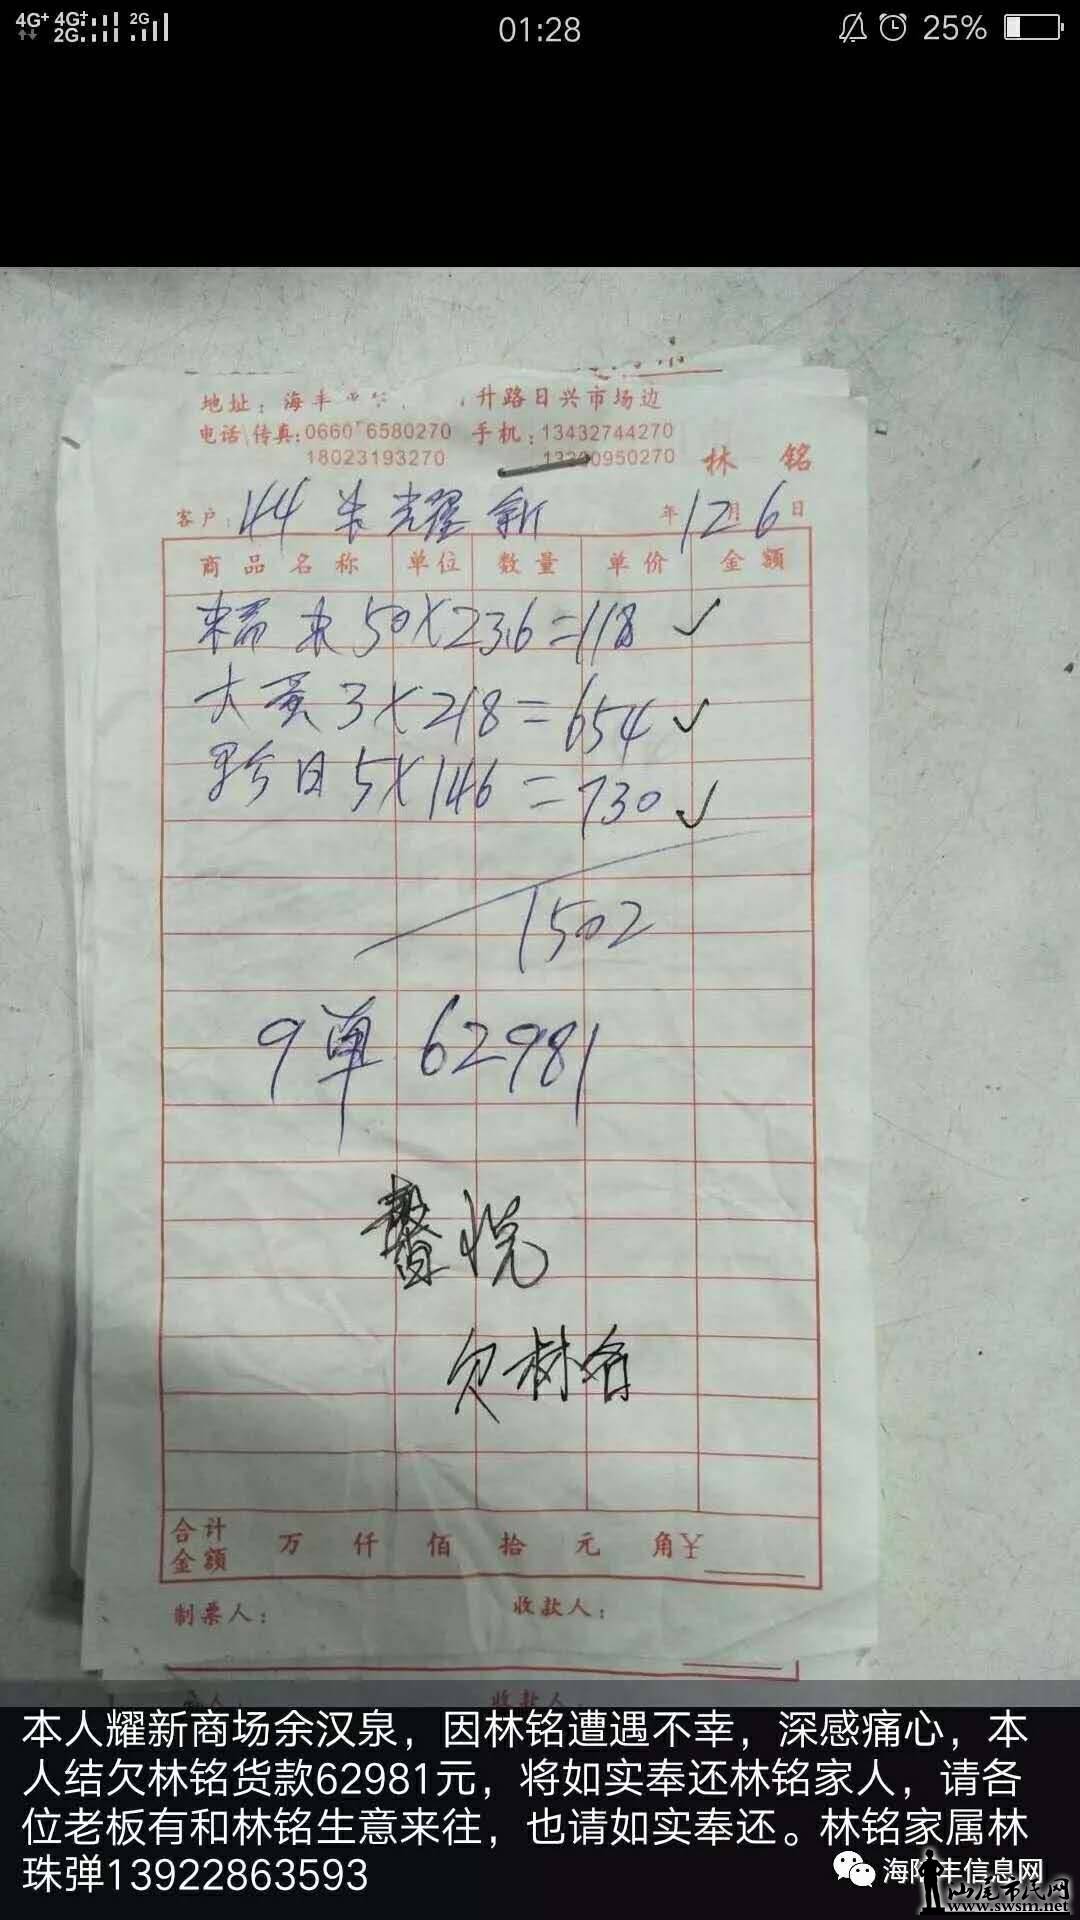 4G+ 4G+ 2G 2G 01:28 25%
地址：海丰 升路日兴市场边
电话\传真:0660 6580270 手机:13432744270
18023193270 0950270 林 铭
客户: 耀新 年12月6日
商品名称 单位 数量 单价 金额
糯米 50×23.6=118 ✓
大 3×218=654 ✓
5×146=730 ✓
1502
9单 62981
悦
欠林名
合计金额 万 仟 佰 拾 元 角 ¥
制票人: 收款人:
人: 收款人:
本人耀新商场余汉泉，因林铭遭遇不幸，深感痛心，本
人结欠林铭货款62981元，将如实奉还林铭家人，请各
位老板有和林铭生意来往，也请如实奉还。林铭家属林
珠弹13922863593
海陆丰信息网
汕尾市民网
www.swsm.net